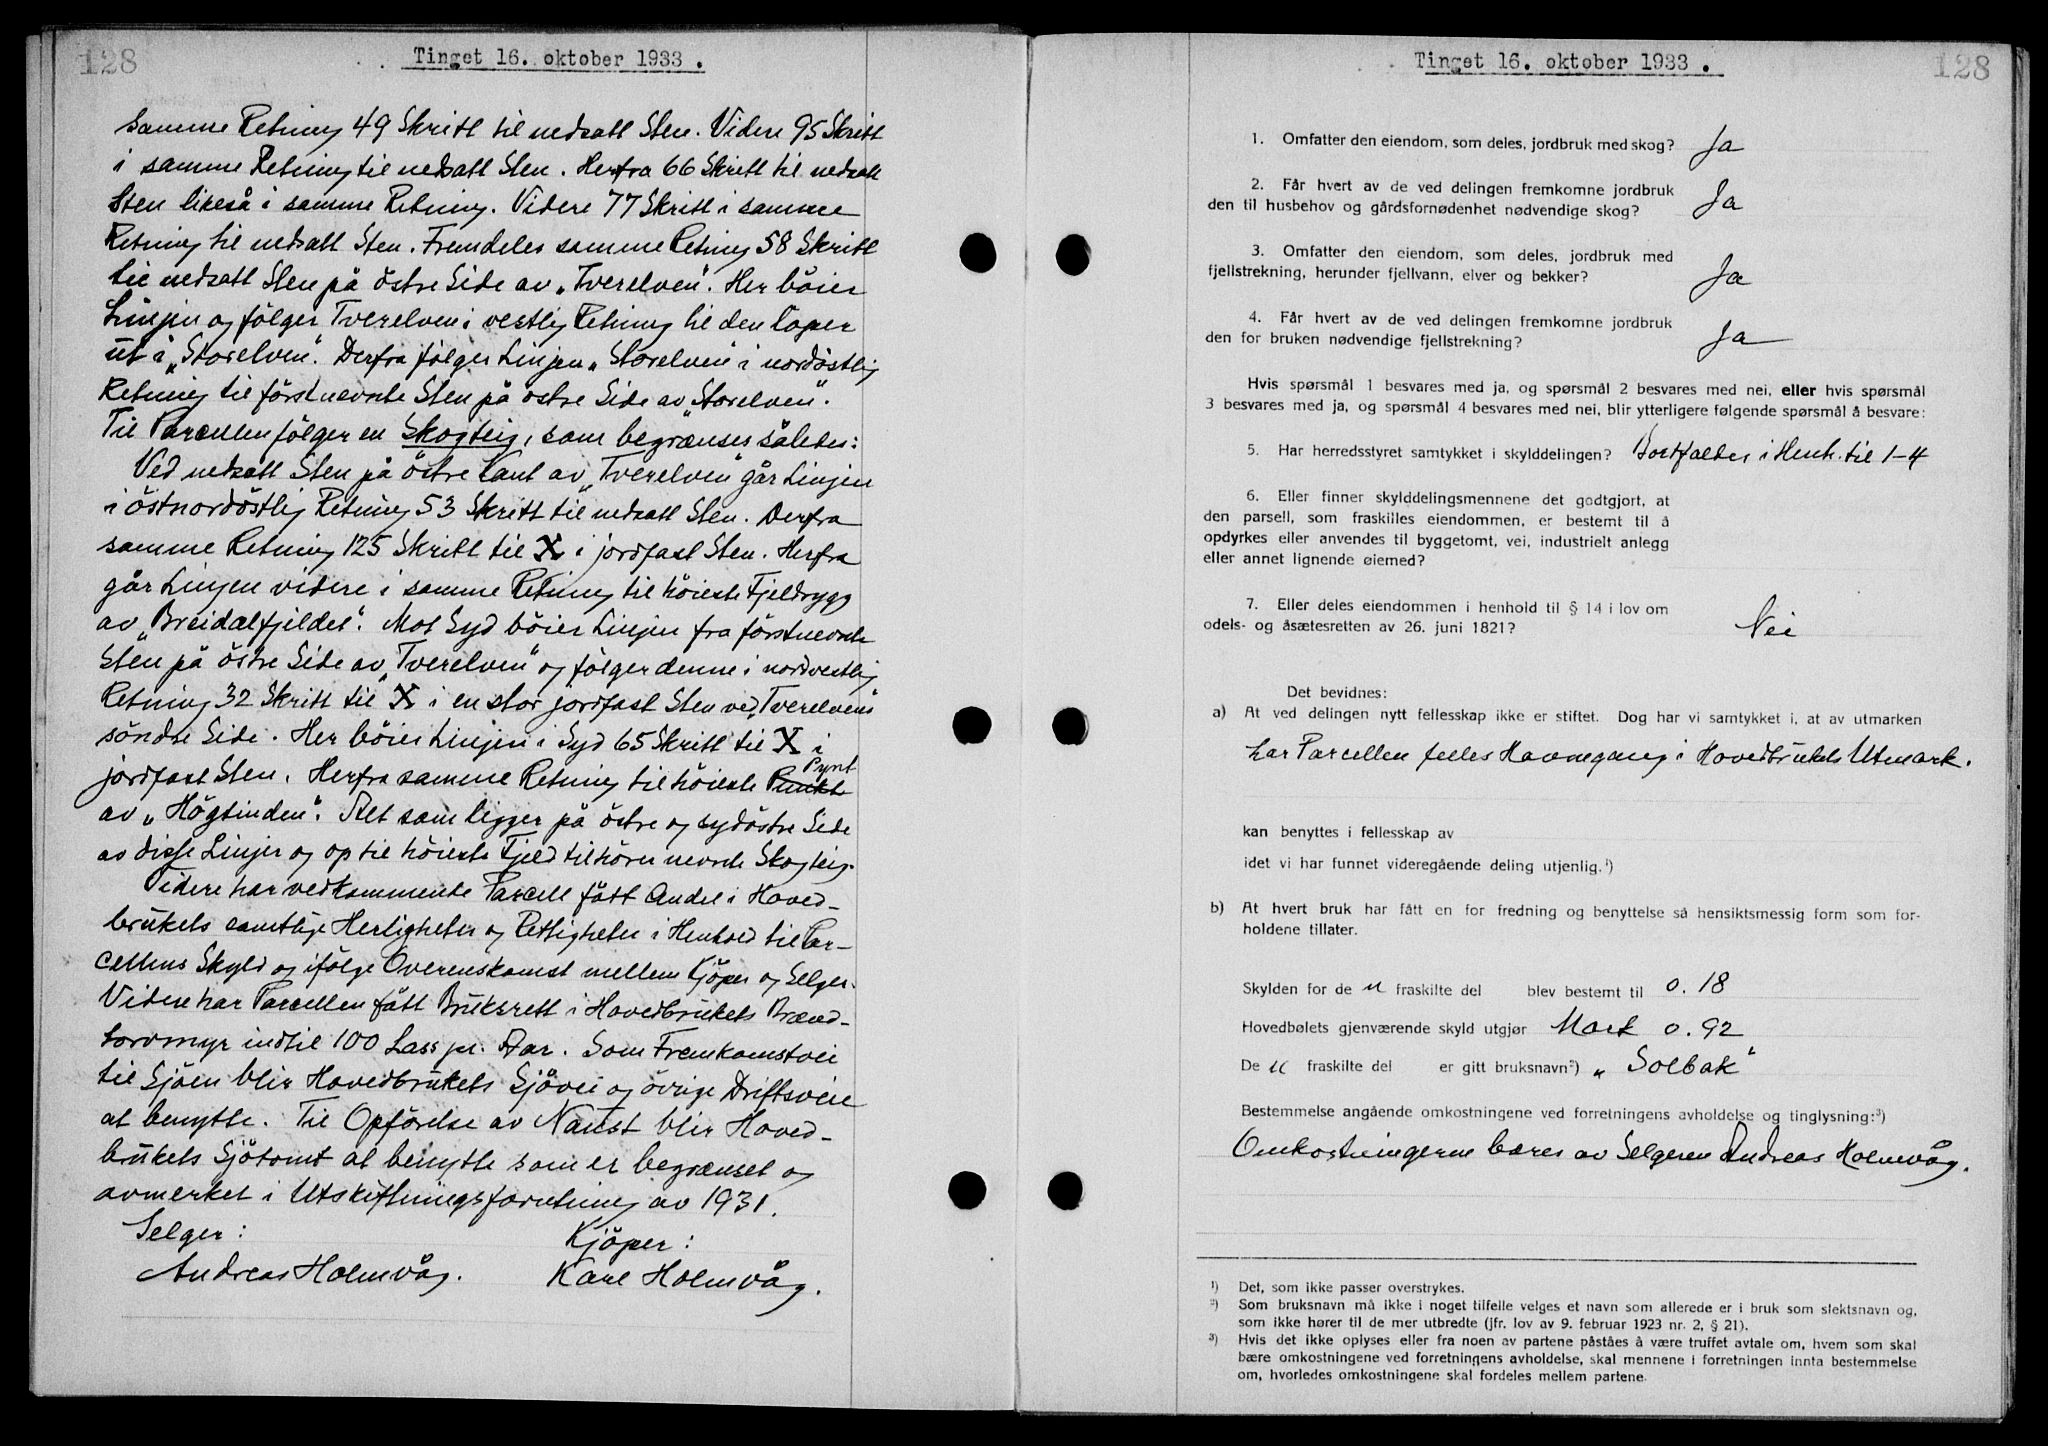 128
Tinget 16. oktober 1933.
samme Retning 49 Skritt til nedsatt Sten. Videre 95 Skritt
i samme Retning til nedsatt Sten. Herfra 66 Skritt til nedsatt
Sten likeså i samme Retning. Videre 77 Skritt i samme
Retning til nedsatt Sten. Fremdeles samme Retning 58 Skritt
til nedsatt Sten på östre Side av „Tverelven". Her böier
Linjen og fölger Tverelven i vestlig Retning til den löper
ut i „Storelven". Derfra fölger Linjen „Storelven" i nordöstlig
Retning til först nevnte Sten på östre Side av „Storelven".
Til Parcellen fölger en Skogteig, som begrænses således:
Ved nedsatt Sten på östre Kant av „Tverelven" går Linjen
i östnordöstlig Retning 53 Skritt til nedsatt Sten. Derfra
samme Retning 125 Skritt til X i jordfast Sten. Herfra
går Linjen videre i samme Retning til höieste Fjeldrygg
av „Breidalfjeldet". Mot Syd böier Linjen fra förstnevnte
Sten på östre Side av „Tverelven" og fölger denne i nordvestlig
Retning 32 Skritt til X i en stor jordfast Sten ved „Tverelvens"
söndre Side. Her böier Linjen i Syd 65 Skritt til X i
jordfast Sten. Herfra samme Retning til höieste Punkt Pynt
av „Högtinden". Alt som ligger på östre og sydöstre Side
av disse Linjer og op til höieste Fjeld tilhörer nevnte Skogteig.
Videre har vedkommende Parcell fått Andel i Hoved-
brukets samtlige Herligheter og Rettigheter i Henhold til Par-
cellens Skyld og ifölge Overenskomst mellem Kjöper og Selger.
Videre har Parcellen fått Bruksrett i Hovedbrukets Brænd-
torvmyr indtil 100 Lass pr. Aar. Som Fremkomstvei
til Sjöen blir Hovedbrukets Sjövei og övrige Driftsveie
at benytte. Til Opförelse av Naust blir Hoved-
brukets Sjötomt at benytte som er begrænset og
avmerket i Utskiftningsforretning av 1931.
Selger: Kjöper:
Andreas Holmvåg. Karl Holmvåg.
128
Tinget 16. oktober 1933.
1. Omfatter den eiendom, som deles, jordbruk med skog? Ja
2. Får hvert av de ved delingen fremkomne jordbruk
den til husbehov og gårdsfornødenhet nødvendige skog? Ja
3. Omfatter den eiendom, som deles, jordbruk med
fjellstrekning, herunder fjellvann, elver og bekker? Ja
4. Får hvert av de ved delingen fremkomne jordbruk
den for bruken nødvendige fjellstrekning? Ja
Hvis spørsmål 1 besvares med ja, og spørsmål 2 besvares med nei, eller hvis spørsmål
3 besvares med ja, og spørsmål 4 besvares med nei, blir ytterligere følgende spørsmål å besvare:
5. Har herredsstyret samtykket i skylddelingen? Bortfalder i Henh. til 1-4
6. Eller finner skylddelingsmennene det godtgjort, at
den parsell, som fraskilles eiendommen, er bestemt til å
opdyrkes eller anvendes til byggetomt, vei, industrielt anlegg
eller annet lignende øiemed?
7. Eller deles eiendommen i henhold til § 14 i lov om
odels- og åsætesretten av 26. juni 1821? Nei
Det bevidnes:
a) At ved delingen nytt fellesskap ikke er stiftet. Dog har vi samtykket i, at av utmarken
har Parcellen felles Havnegang i Hovedbrukets Utmark.
kan benyttes i fellesskap av
idet vi har funnet videregående deling utjenlig.¹)
b) At hvert bruk har fått en for fredning og benyttelse så hensiktsmessig form som for-
holdene tillater.
Skylden for de n fraskilte del blev bestemt til 0.18
Hovedbølets gjenværende skyld utgjør Mark 0.92
De n fraskilte del er gitt bruksnavn²) „Solbak"
Bestemmelse angående omkostningene ved forretningens avholdelse og tinglysning:³)
Omkostningerne bæres av Selgeren Andreas Holmvåg.
¹) Det, som ikke passer overstrykes.
²) Som bruksnavn må ikke i noget tilfelle velges et navn som allerede er i bruk som slektsnavn og,
som ikke hører til de mer utbredte (jfr. lov av 9. februar 1923 nr. 2, § 21).
³) Hvis det ikke oplyses eller fra noen av partene påståes å være truffet avtale om, hvem som skal
bære omkostningene ved forretningens avholdelse, skal mennene i forretningen innta bestemmelse
om, hvorledes omkostningene skal fordeles mellem partene.